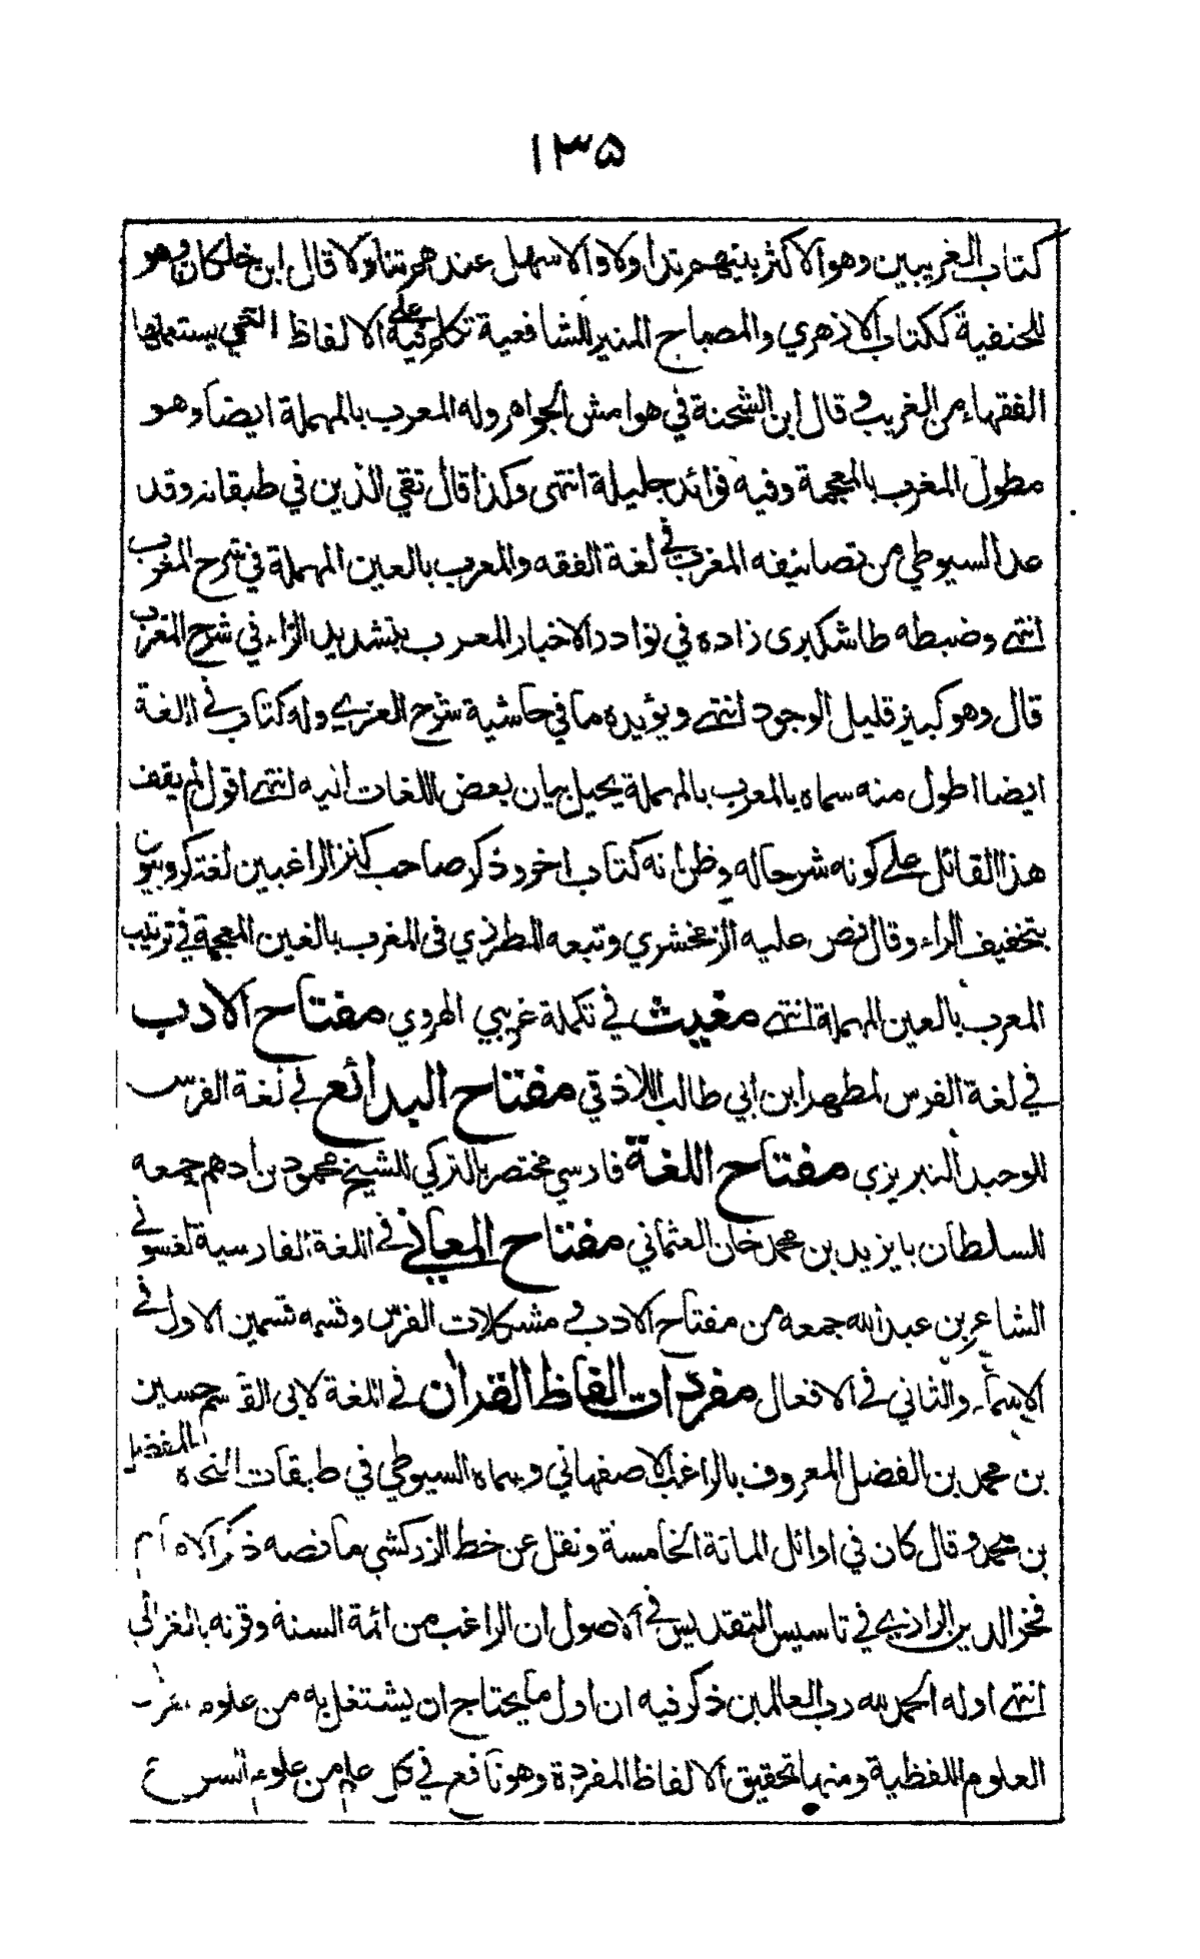 ١٣٥
كتاب الغريبين وهو الاكثر بينهم تداولا والاسهل عندهم تناولا قال ابن خلكان وهو
للحنفية ككتاب الازهري والمصباح المنير للشافعية تكلم فيه على الالفاظ التي يستعملها
الفقهاء من الغريب وقال ابن الشحنة في هوامش الجواهر وله المعرب بالمهملة ايضا وهو
مطول المغرب بالمعجمة وفيه فوائد جليلة انتهى وكذا قال تقي الدين في طبقاته وقد
عد السيوطي من تصانيفه المغرب في لغة الفقه والمعرب بالعين المهملة في شرح المغرب
انتهى وضبطه طاشكبرى زاده في نوادر الاخبار المعرب بتشديد الراء في شرح المغرب
قال وهو كبير قليل الوجود انتهى ويؤيده ما في حاشية شرح العزي وله كتاب في اللغة
ايضا اطول منه سماه بالمعرب بالمهملة يحيل بيان بعض اللغات اليه انتهى اقول لم يقف
هذا القائل على كونه شرحا له وظن انه كتاب اخر وذكر صاحب كنز الراغبين لغة كروبيون
بتخفيف الراء وقال نص عليه الزمخشري وتبعه المطرزي فى المغرب بالغين المعجمة في ترتيب
المعرب بالعين المهملة انتهى مغيث في تكملة غريبي الهروي مفتاح الادب
في لغة الفرس لمطهر ابن ابي طالب اللاذقي مفتاح البدائع في لغة الفرس
للوحيد التبريزي مفتاح اللغة فارسي مختصر بالتركي للشيخ محمود بن ادهم جمعه
للسلطان بايزيد بن محمد خان العثماني مفتاح المعاني في اللغة الفارسية لغسوني
الشاعر بن عبد الله جمعه من مفتاح الادب في مشكلات الفرس وقسمه قسمين الاول في
الاسماء والثاني في الافعال مفردات الفاظ القران في اللغة لابى القاسم حسين
بن محمد بن الفضل المعروف بالراغب الاصفهاني وسماه السيوطي في طبقات النحاة المفضل
بن محمد وقال كان في اوائل المائة الخامسة ونقل عن خط الزركشي ما نصه ذكر الامام
فخر الدين الرازي في تاسيس التقديس في الاصول ان الراغب من ائمة السنة وقرنه بالغزالي
انتهى اوله الحمد لله رب العالمين ذكر فيه ان اول ما يحتاج ان يشتغل به من علوم
العلوم اللفظية ومنها تحقيق الالفاظ المفردة وهو نافع في كل علم من علوم الشرع